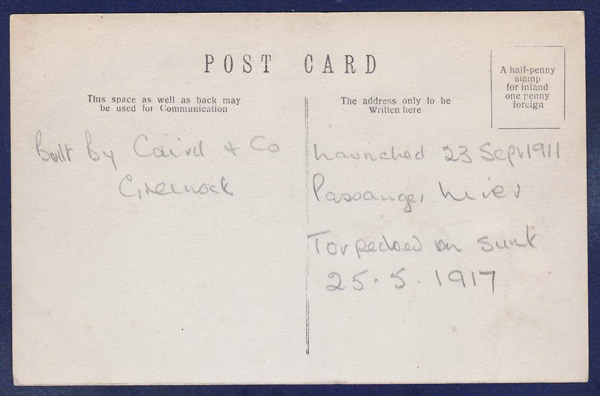 POST CARD
A half-penny
stamp
for inland
one penny
foreign
This space as well as back may
be used for Communication
The address only to be
Written here
Built By Caird + Co
Greenock
Launched 23 Sept 1911
Passanger Liner
Torpedoed on Sunk
25.5.1917